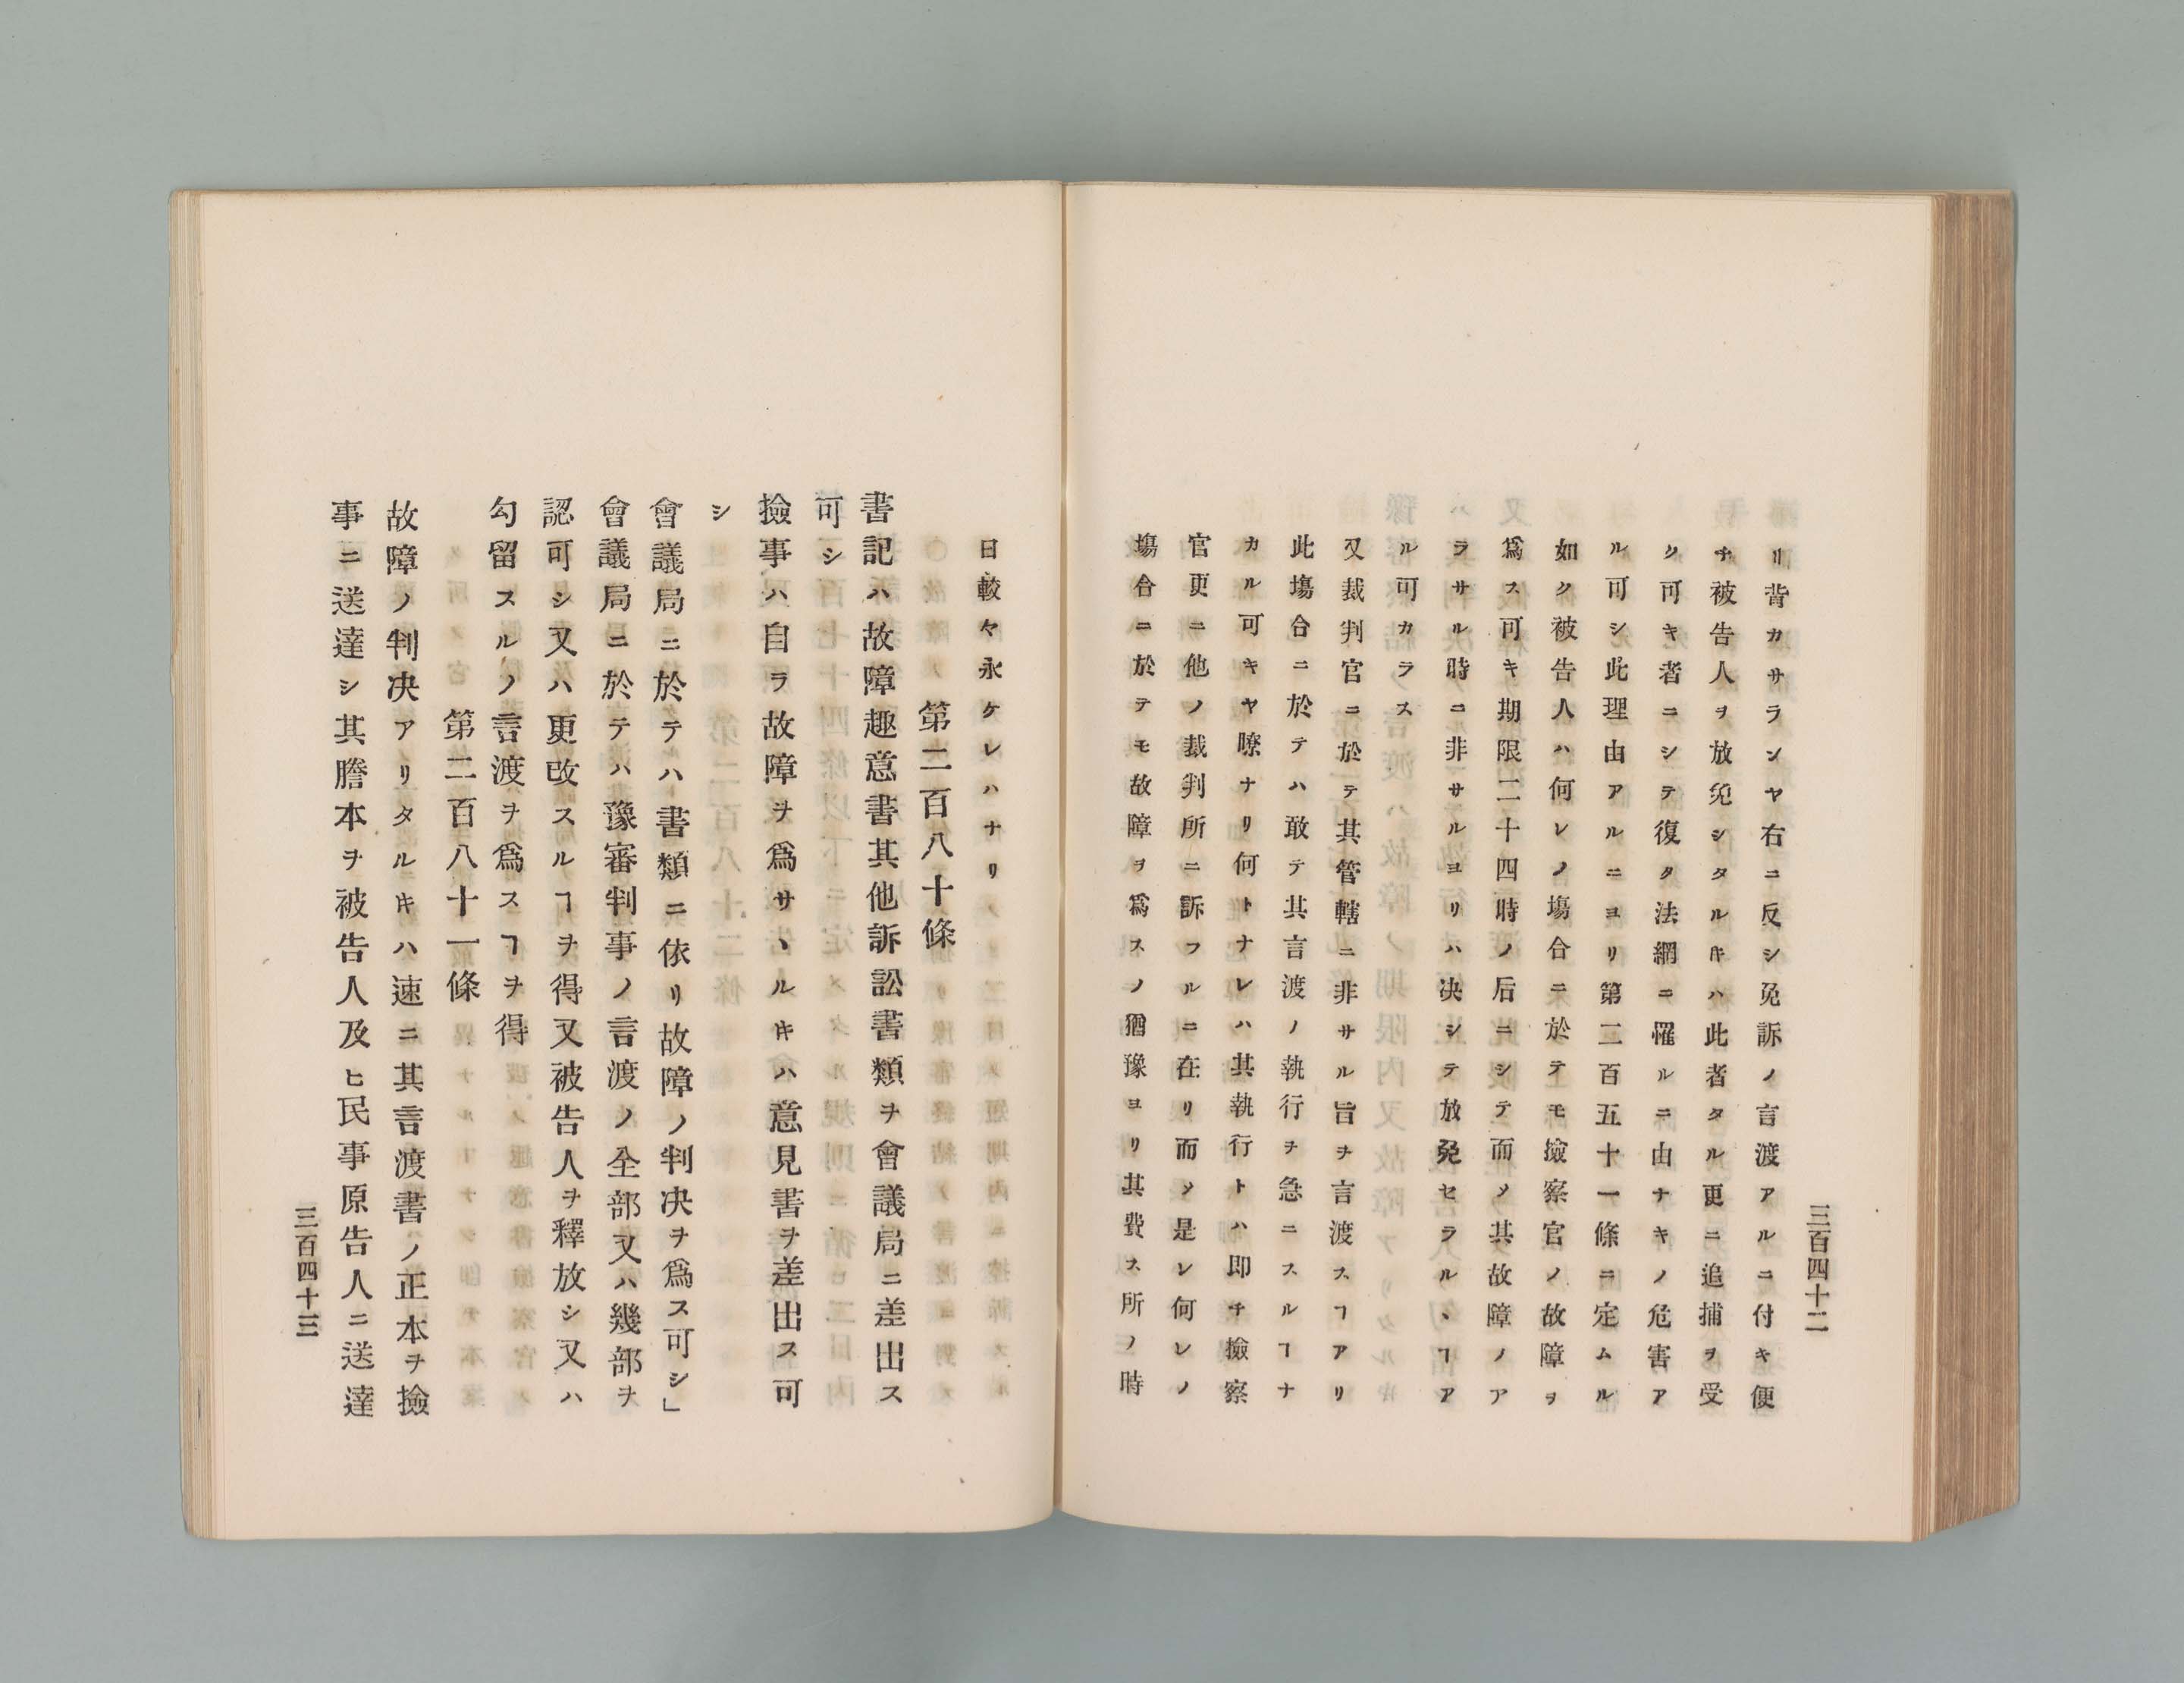 三百四十二
リ背カサランヤ右ニ反シ免訴ノ言渡アルニ付キ便
チ被告人ヲ放免シタルキハ此者タル更ニ追捕ヲ受
ク可キ者ニシテ復タ法網ニ罹ルニ由ナキノ危害ア
ル可シ此理由アルニヨリ第二百五十一條ニ定ムル
如ク被告人ハ何レノ塲合ニ於テモ撿察官ノ故障ヲ
爲ス可キ期限二十四時ノ后ニシテ而〆其故障ノア
ラサル時ニ非サルヨリハ决シテ放免セラルヽヿア
ル可カラス
又裁判官ニ於テ其管轄ニ非サル旨ヲ言渡スヿアリ
此塲合ニ於テハ敢テ其言渡ノ執行ヲ急ニスルヿナ
カル可キヤ瞭ナリ何トナレハ其執行トハ即チ撿察
官更ニ他ノ裁判所ニ訴フルニ在リ而〆是レ何レノ
塲合ニ於テモ故障ヲ爲スノ猶豫ヨリ其費ス所ノ時
日較々永ケレハナリ
第二百八十條
書記ハ故障趣意書其他訴訟書類ヲ會議局ニ差出ス
可シ
撿事ハ自ラ故障ヲ爲サヽルキハ意見書ヲ差出ス可
シ
會議局ニ於テハ書類ニ依リ故障ノ判决ヲ爲ス可シ」
會議局ニ於テハ豫審判事ノ言渡ノ全部又ハ幾部ヲ
認可シ又ハ更改スルヿヲ得又被告人ヲ釋放シ又ハ
勾留スルノ言渡ヲ爲スヿヲ得
第二百八十一條
故障ノ判决アリタルキハ速ニ其言渡書ノ正本ヲ撿
事ニ送達シ其謄本ヲ被告人及ヒ民事原告人ニ送達
三百四十三